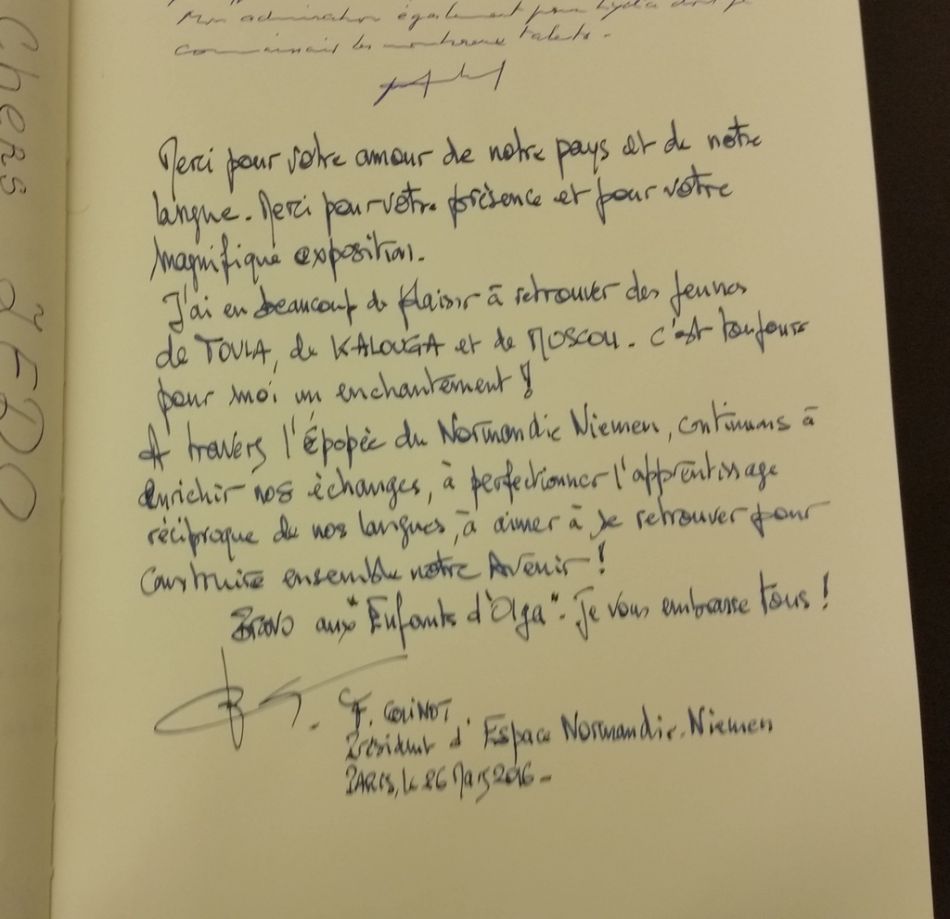 Mon admiration également pour Lydia dont je
connaissais les nombreux talents.
Merci pour votre amour de notre pays et de notre
langue. Merci pour votre présence et pour votre
magnifique exposition.
J'ai eu beaucoup de plaisir à retrouver des jeunes
de TOULA, de KALOUGA et de MOSCOU. c'est toujours
pour moi un enchantement !
A travers l'Épopée du Normandie Niemen, continuons à
enrichir nos échanges, à perfectionner l'apprentissage
réciproque de nos langues, à aimer à se retrouver pour
construire ensemble notre Avenir !
Bravo aux "Enfants d'Olga". Je vous embrasse tous !
F.
Président d'Espace Normandie-Niemen
PARIS, le 26 Mars 2016-
Chers